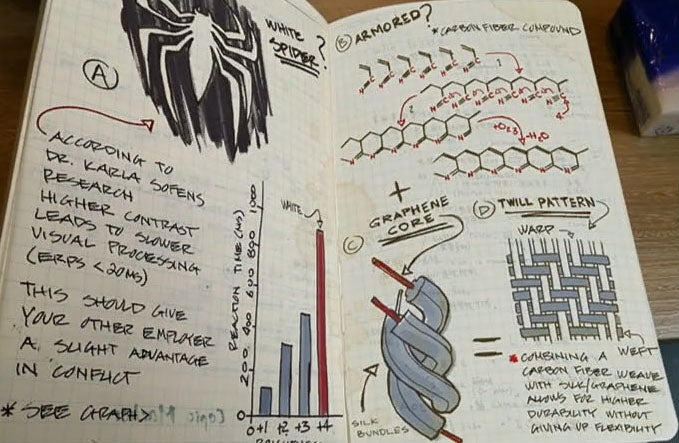 WHITE
SPIDER?
A
ACCORDING TO
DR. KARLA SOFENS
RESEARCH
HIGHER CONTRAST
LEADS TO SLOWER
VISUAL PROCESSING
(ERPS < 20MS)
THIS SHOULD GIVE
YOUR OTHER EMPLOYER
A SLIGHT ADVANTAGE
IN CONFLICT
* SEE GRAPH>
REACTION TIME (MS)
0 200 400 600 800 1000
WHITE
+1 +2 +3 +4
B ARMORED?
* CARBON FIBER COMPOUND
1
2
4
+O2
-H2O
+
GRAPHENE
CORE
C
SILK
BUNDLES
=
D TWILL PATTERN
WARP
WEFT
* COMBINING A
CARBON FIBER WEAVE
WITH SILK/GRAPHENE
ALLOWS FOR HIGHER
DURABILITY WITHOUT
GIVING UP FLEXIBILITY